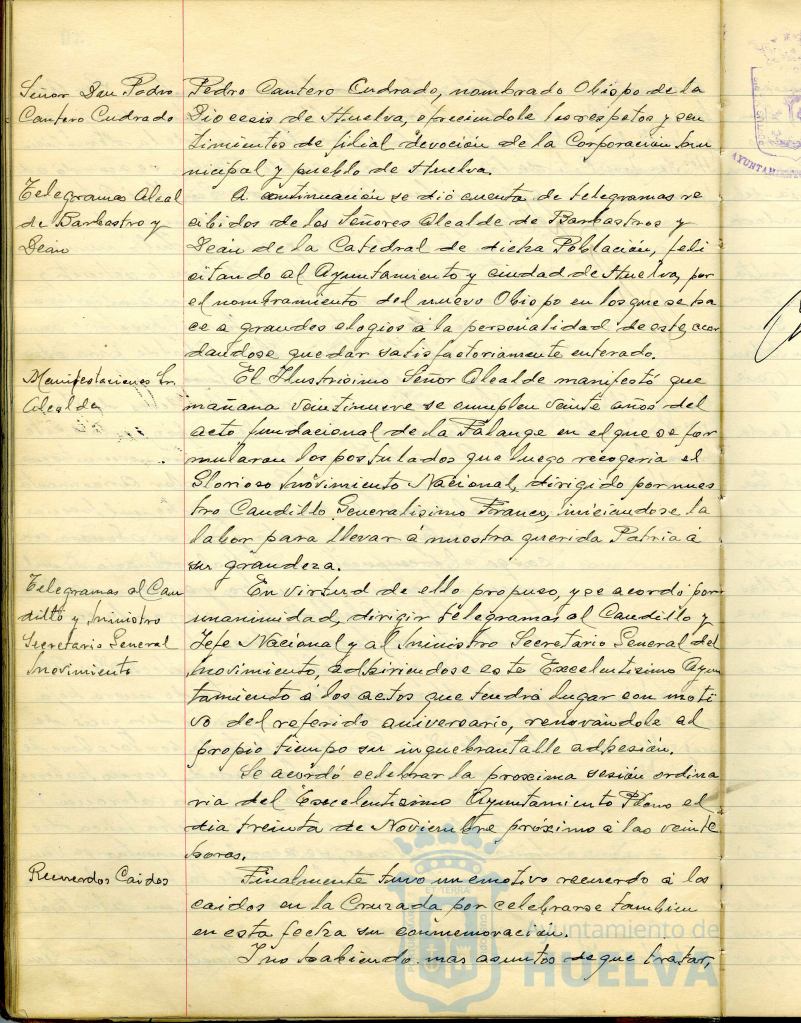 Señor Don Pedro
Cantero Cudrado
Pedro Cantero Cudrado, nombrado Obispo de la
Diocesis de Huelva, ofreciendole los respetos y sen
timientos de filial devoción de la Corporación Mu
nicipal y pueblo de Huelva.
Telegramas Alcal
de Barbastro y
Deán
A continuación se dió cuenta de telegramas re
cibidos de los Señores Alcalde de Barbastros y
Deán de la Catedral de dicha Población, feli
citando al Ayuntamiento y ciudad de Huelva, por
el nombramiento del nuevo Obispo en los que se ha
ce a grandes elogios á la personalidad de este, acor
dandose quedar satisfactoriamente enterado.
Manifestaciones Sr.
Alcalde
El Ilustrisimo Señor Alcalde manifestó que
mañana veintinueve se cumplen veinte años del
acto fundacional de la Falange en el que se for
mularon los postulados que luego recogeria el
Glorioso Movimiento Nacional, dirigido por nues
tro Caudillo Generalisimo Franco, iniciandose la
labor para llevar á nuestra querida Patria á
su grandeza.
Telegramas al Cau
dillo y Ministro
Secretario General
Movimiento
En virtud de ello propuso, y se acordó por
unanimidad, dirigir telegramas al Caudillo y
Jefe Nacional y al Ministro Secretario General del
Movimiento, adhiriendose este Excelentisimo Ayun
tamiento á los actos que tendrá lugar con moti
vo del referido aniversario, renovándole al
propio tiempo su inquebrantable adhesión.
Se acordó celebrar la proxima sesión ordina
ria del Excelentisimo Ayuntamiento Pleno el
dia treinta de Noviembre próximo á las veinte
horas.
Recuerdos Caidos
Finalmente tuvo un emotivo recuerdo á los
caidos en la Cruzada por celebrarse tambien
en esta fecha su conmemoración.
Y no habiendo mas asuntos de que tratar,
Ayuntamiento de
HUELVA